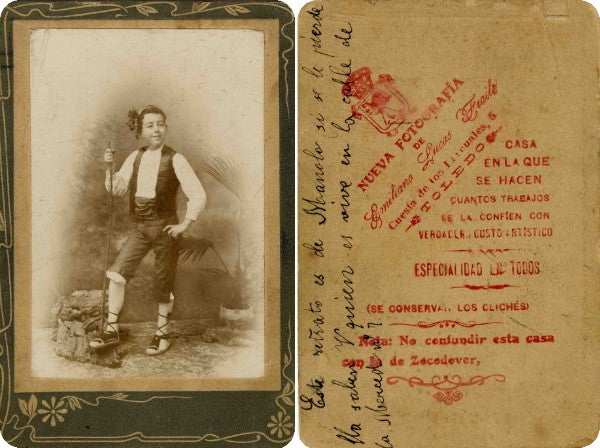 NUEVA FOTOGRAFÍA
DE
Emiliano Lucas Fraile
Cuesta de los 5
TOLEDO
CASA
EN LA QUE
SE HACEN
CUANTOS TRABAJOS
SE LA CONFÍEN CON
VERDADERO GUSTO ARTÍSTICO
ESPECIALIDAD EN TODOS
(SE CONSERVAN LOS CLICHÉS)
Nota: No confundir esta casa
con la de Zocodever,
Este retrato es de Manolo si se le pierde
Ya saben quien es vive en la calle de
la Merced nº 7